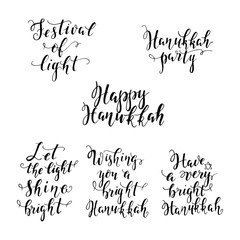 Festival
of
light
Hanukkah
party
Happy
Hanukkah
Let
the light
Shine
bright
Wishing
you a
bright
Hanukkah
Have
a very
bright
Hanukkah